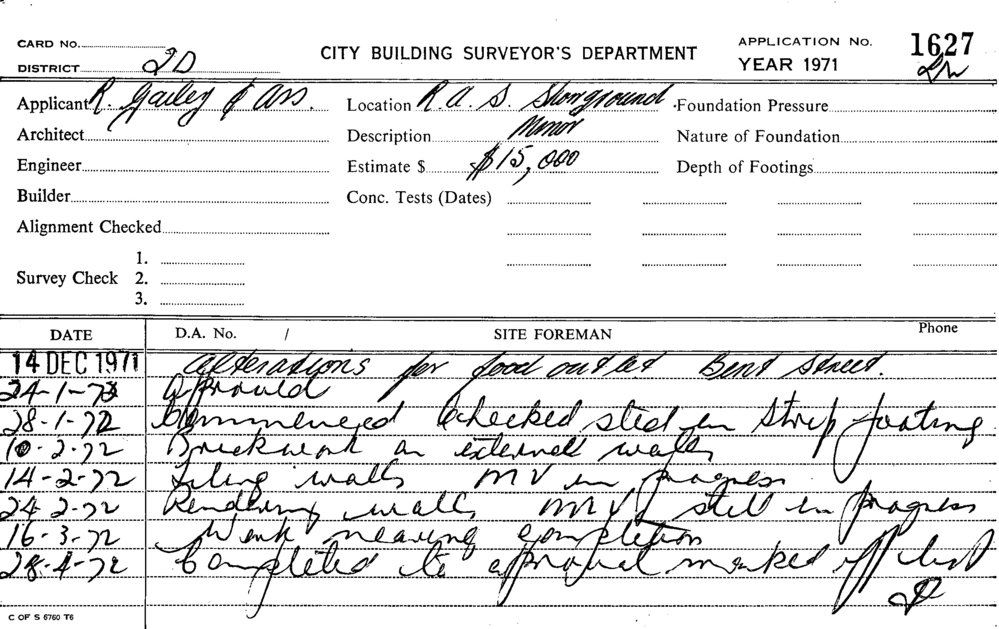 CARD No.
DISTRICT 2D
CITY BUILDING SURVEYOR'S DEPARTMENT
APPLICATION No. 1627
YEAR 1971
Applicant R. Gailey & Ass.
Location R.A.S. Showground
Foundation Pressure
Architect
Description Minor
Nature of Foundation
Engineer
Estimate $ $15,000
Depth of Footings
Builder
Conc. Tests (Dates)
Alignment Checked
Survey Check 1.
2.
3.
DATE D.A. No. / SITE FOREMAN Phone
14 DEC 1971 Alterations for food outlet Bent Street.
24-1-72 Approved
28-1-72 Commenced Checked steel in strip footing
10-2-72 Brickwork on external walls
14-2-72 Tiling walls MV in progress
24-2-72 Rendering walls MV still in progress
16-3-72 Work nearing completion
28-4-72 Completed to approval marked off list
C OF S 6760 T6